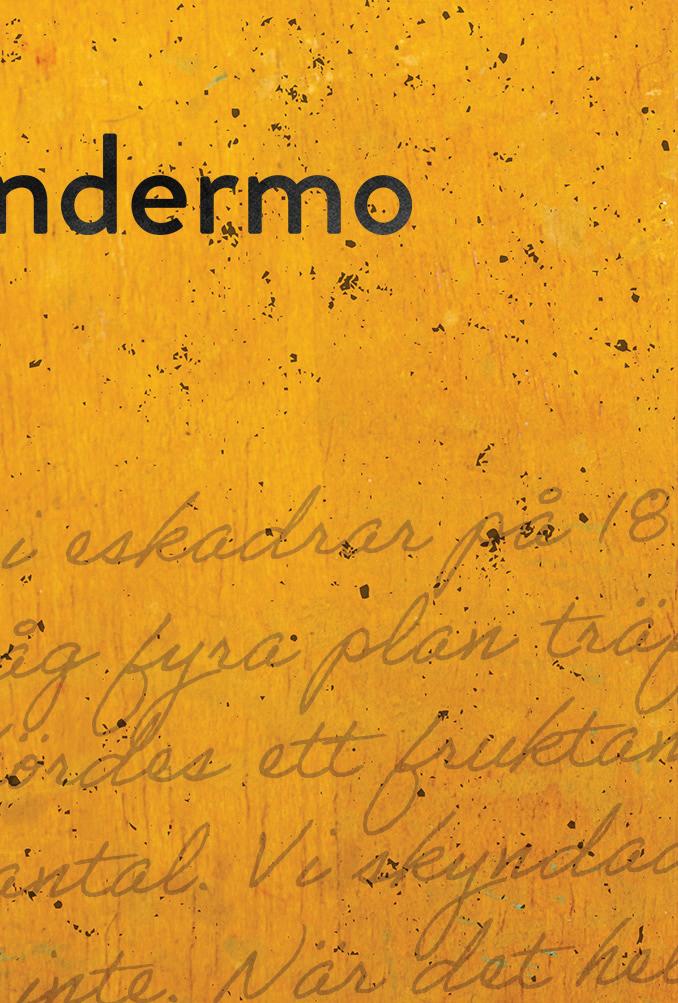 ndermo
i eskadrar på 18
åg fyra plan träf
ördes ett fruktan
antal. Vi skyndad
inte. När det hel